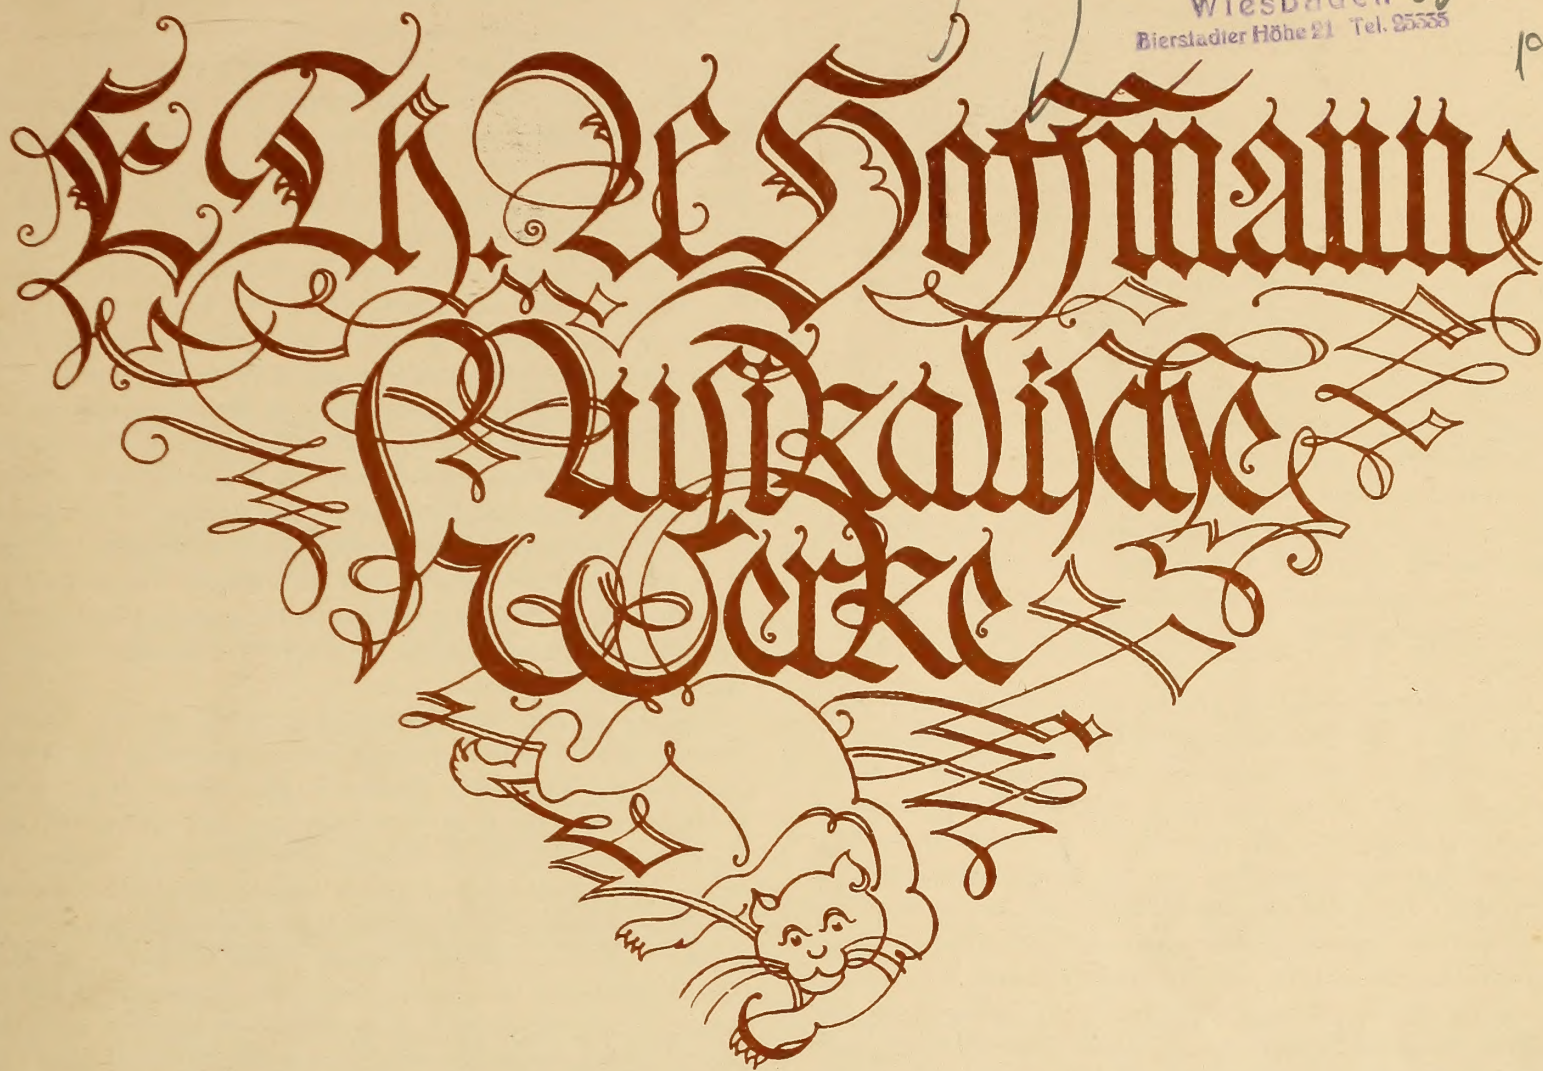 Wiesbaden
Bierstadter Höhe 21 Tel. 25535
E. Th. A Hoffmann
Musikalische
Werke